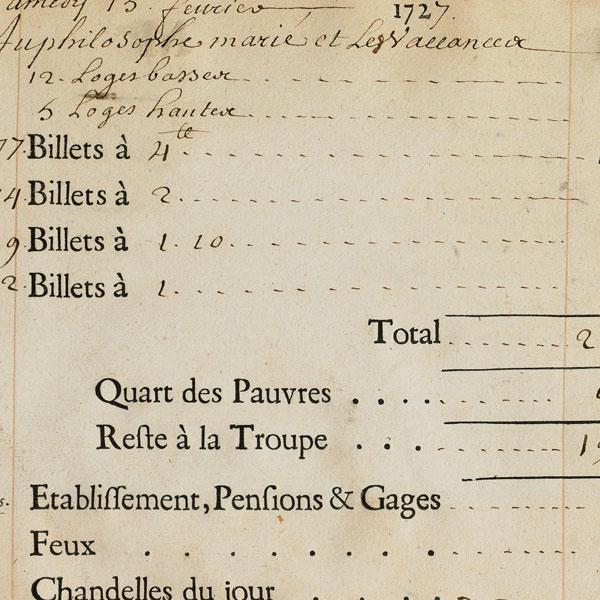 amedy 15. fevrier 1727.
du philosophe marié et Les Vaccances
12. Loges basses
5 Loges hautes
77. Billets à 4 te
4. Billets à 2.
9 Billets à 1. 10.
2. Billets à 1.
Total 2
Quart des Pauvres
Reſte à la Troupe 1
s. Etabliſſement, Penſions & Gages
Feux
Chandelles du jour